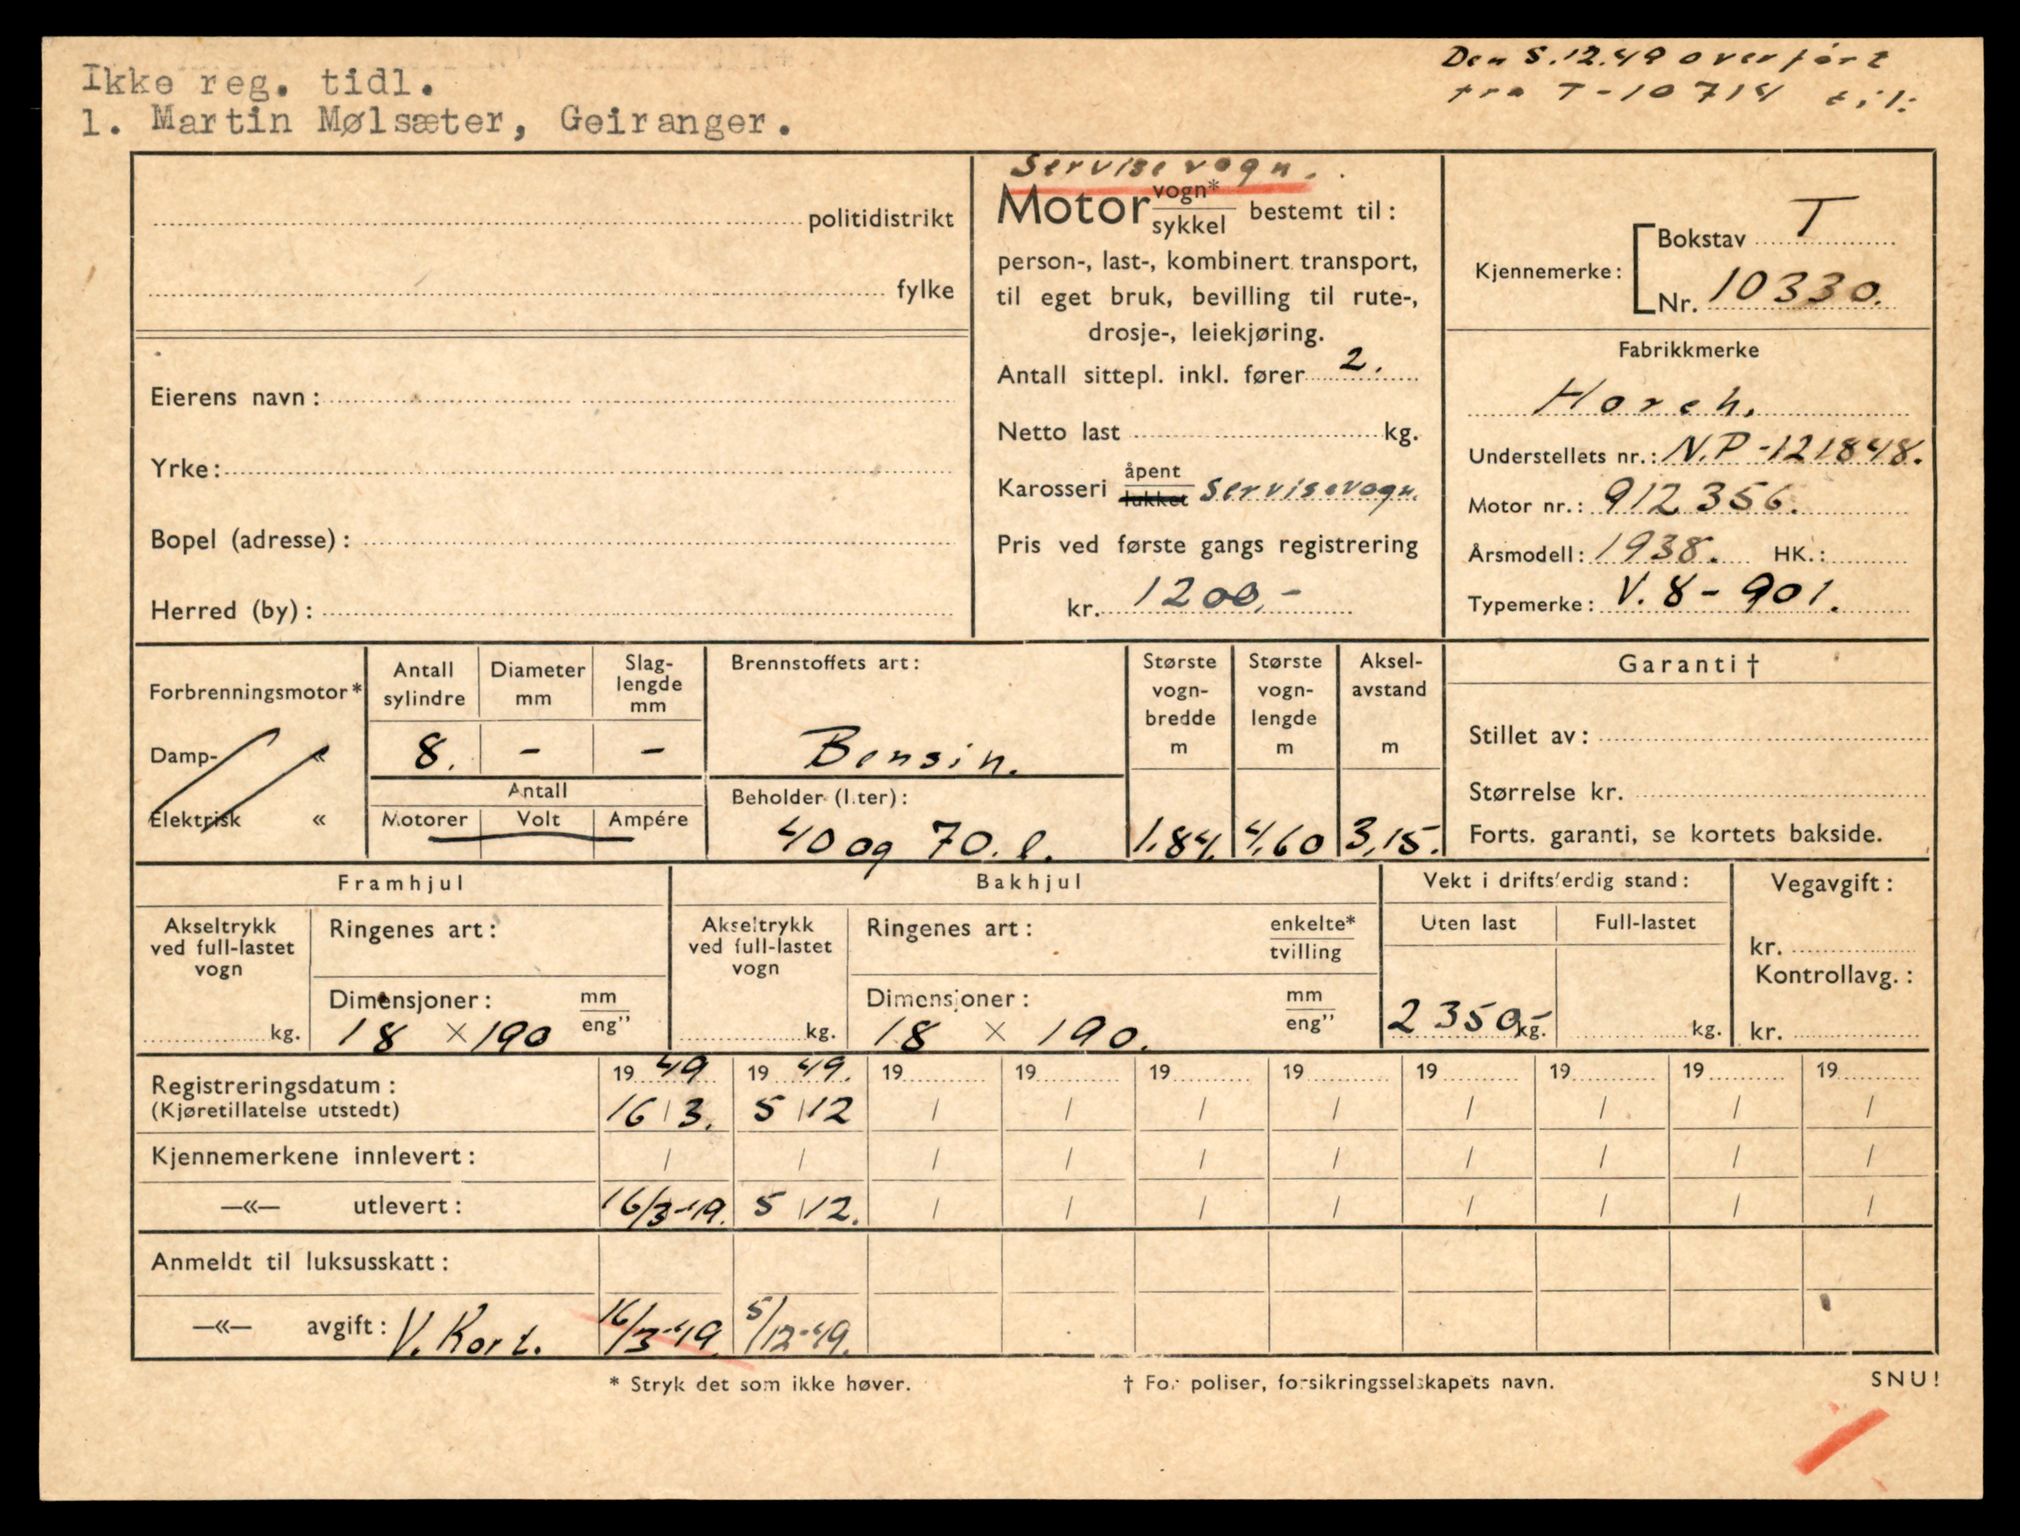 Ikke reg. tidl.
1. Martin Mølsæter, Geiranger.
Den 5.12.49 overført
fra T-10714 til:
politidistrikt
fylke
Eierens navn:
Yrke:
Bopel (adresse):
Herred (by):
Servisevogn.
Motor vogn* / sykkel bestemt til:
person-, last-, kombinert transport,
til eget bruk, bevilling til rute-,
drosje-, leiekjøring.
Antall sittepl. inkl. fører 2.
Netto last kg.
Karosseri åpent / lukket Servisevogn.
Pris ved første gangs registrering
kr. 1200,-
Kjennemerke: Bokstav T
Nr. 10330.
Fabrikkmerke
Horch.
Understellets nr.: N.P-121848.
Motor nr.: 912356.
Årsmodell: 1938. HK.:
Typemerke: V.8-901.
Forbrenningsmotor*
Damp- «
Elektrisk «
Antall sylindre
Diameter mm
Slag-lengde mm
8. - -
Antall
Motorer Volt Ampére
Brennstoffets art:
Bensin.
Beholder (liter):
40 og 70. l.
Største vogn-bredde m
1.84.
Største vogn-lengde m
4,60
Aksel-avstand m
3,15.
Garanti †
Stillet av:
Størrelse kr.
Forts. garanti, se kortets bakside.
Framhjul
Akseltrykk
ved full-lastet
vogn
kg.
Ringenes art:
Dimensjoner: mm / eng”
18 × 190
Bakhjul
Akseltrykk
ved full-lastet
vogn
kg.
Ringenes art: enkelte* / tvilling
Dimensjoner: mm / eng”
18 × 190.
Vekt i driftsferdig stand:
Uten last Full-lastet
2350 kg. kg.
Vegavgift:
kr.
Kontrollavg.:
kr.
Registreringsdatum: 19 49 19 49. 19 19 19 19 19 19 19 19
(Kjøretillatelse utstedt) 16/3. 5/12 / / / / / / / /
Kjennemerkene innlevert: / / / / / / / / / /
—«— utlevert: 16/3-49. 5/12. / / / / / / / /
Anmeldt til luksusskatt:
—«— avgift: V. Kort. 16/3-49. 5/12-49.
* Stryk det som ikke høver.
† For poliser, forsikringsselskapets navn.
SNU!